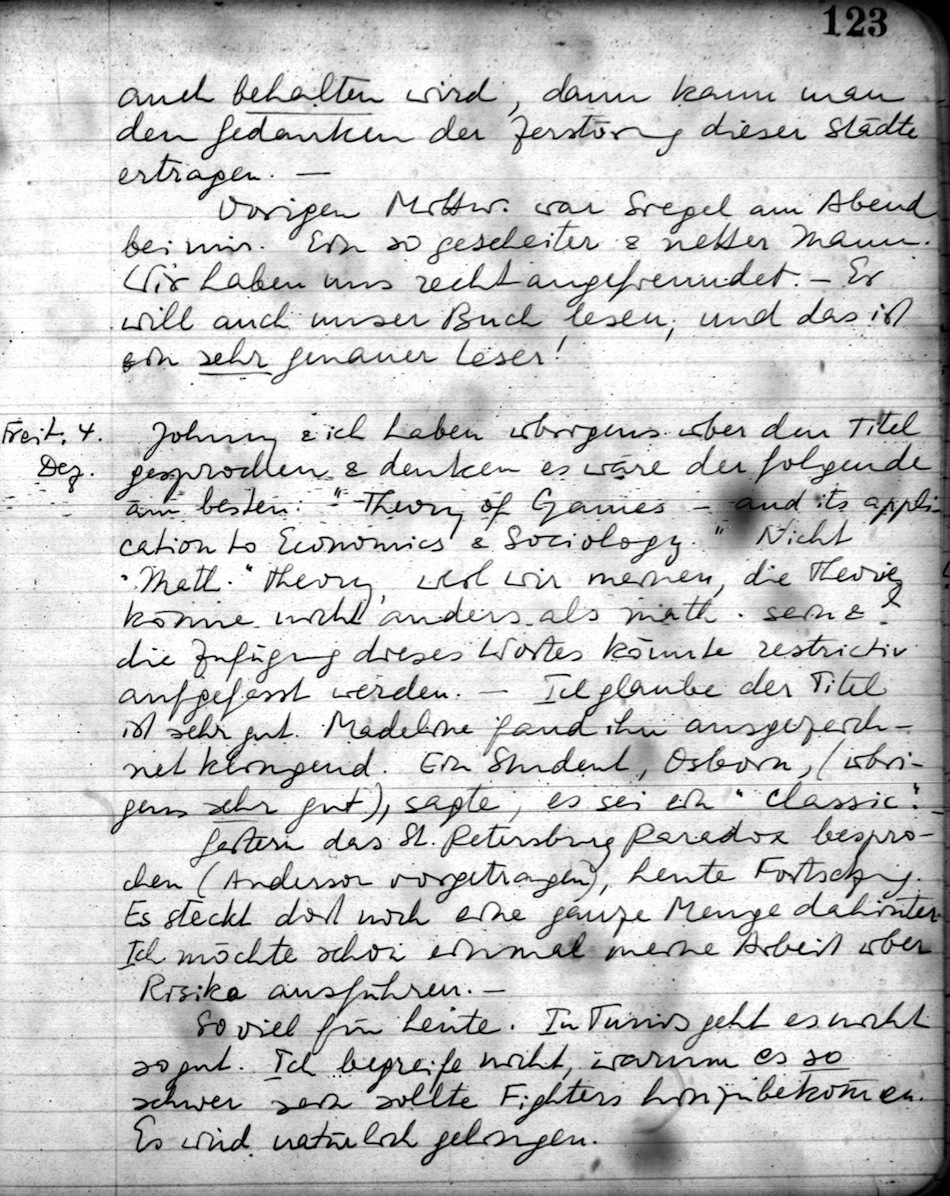 123
auch behalten wird, dann kann man
den Gedanken der Zerstörung dieser Städte
ertragen. —
Vorigen Mittw. war Siegel am Abend
bei mir. Ein so gescheiter & netter Mann.
Wir haben uns recht angefreundet. – Er
will auch unser Buch lesen, und das ist
ein sehr genauer Leser!
Freit. 4. Johnny & ich haben übrigens über den Titel
Dez. gesprochen & denken es wäre der folgende
am besten: "Theory of Games – and its appli-
cation to Economics & Sociology." Nicht
"Math." Theory, weil wir meinen, die Theorie
könne nicht anders als math. sein &
die Zufügung dieses Wortes könnte restrictiv
aufgefasst werden. — Ich glaube der Titel
ist sehr gut. Madeleine fand ihn ausgezeich-
net klingend. Ein Student, Osborn, (übri-
gens sehr gut), sagte, es sei ein "classic".
Gestern das St. Petersburg Paradox bespro-
chen (Anderson vorgetragen), heute Fortsetzung.
Es steckt dort noch eine ganze Menge dahinter
Ich möchte schon einmal meine Arbeit über
Risiko ausführen. –
So viel für heute. In Tunis geht es nicht
so gut. Ich begreife nicht, warum es so
schwer sein sollte Fighters hinzubekommen.
Es wird natürlich gelingen.